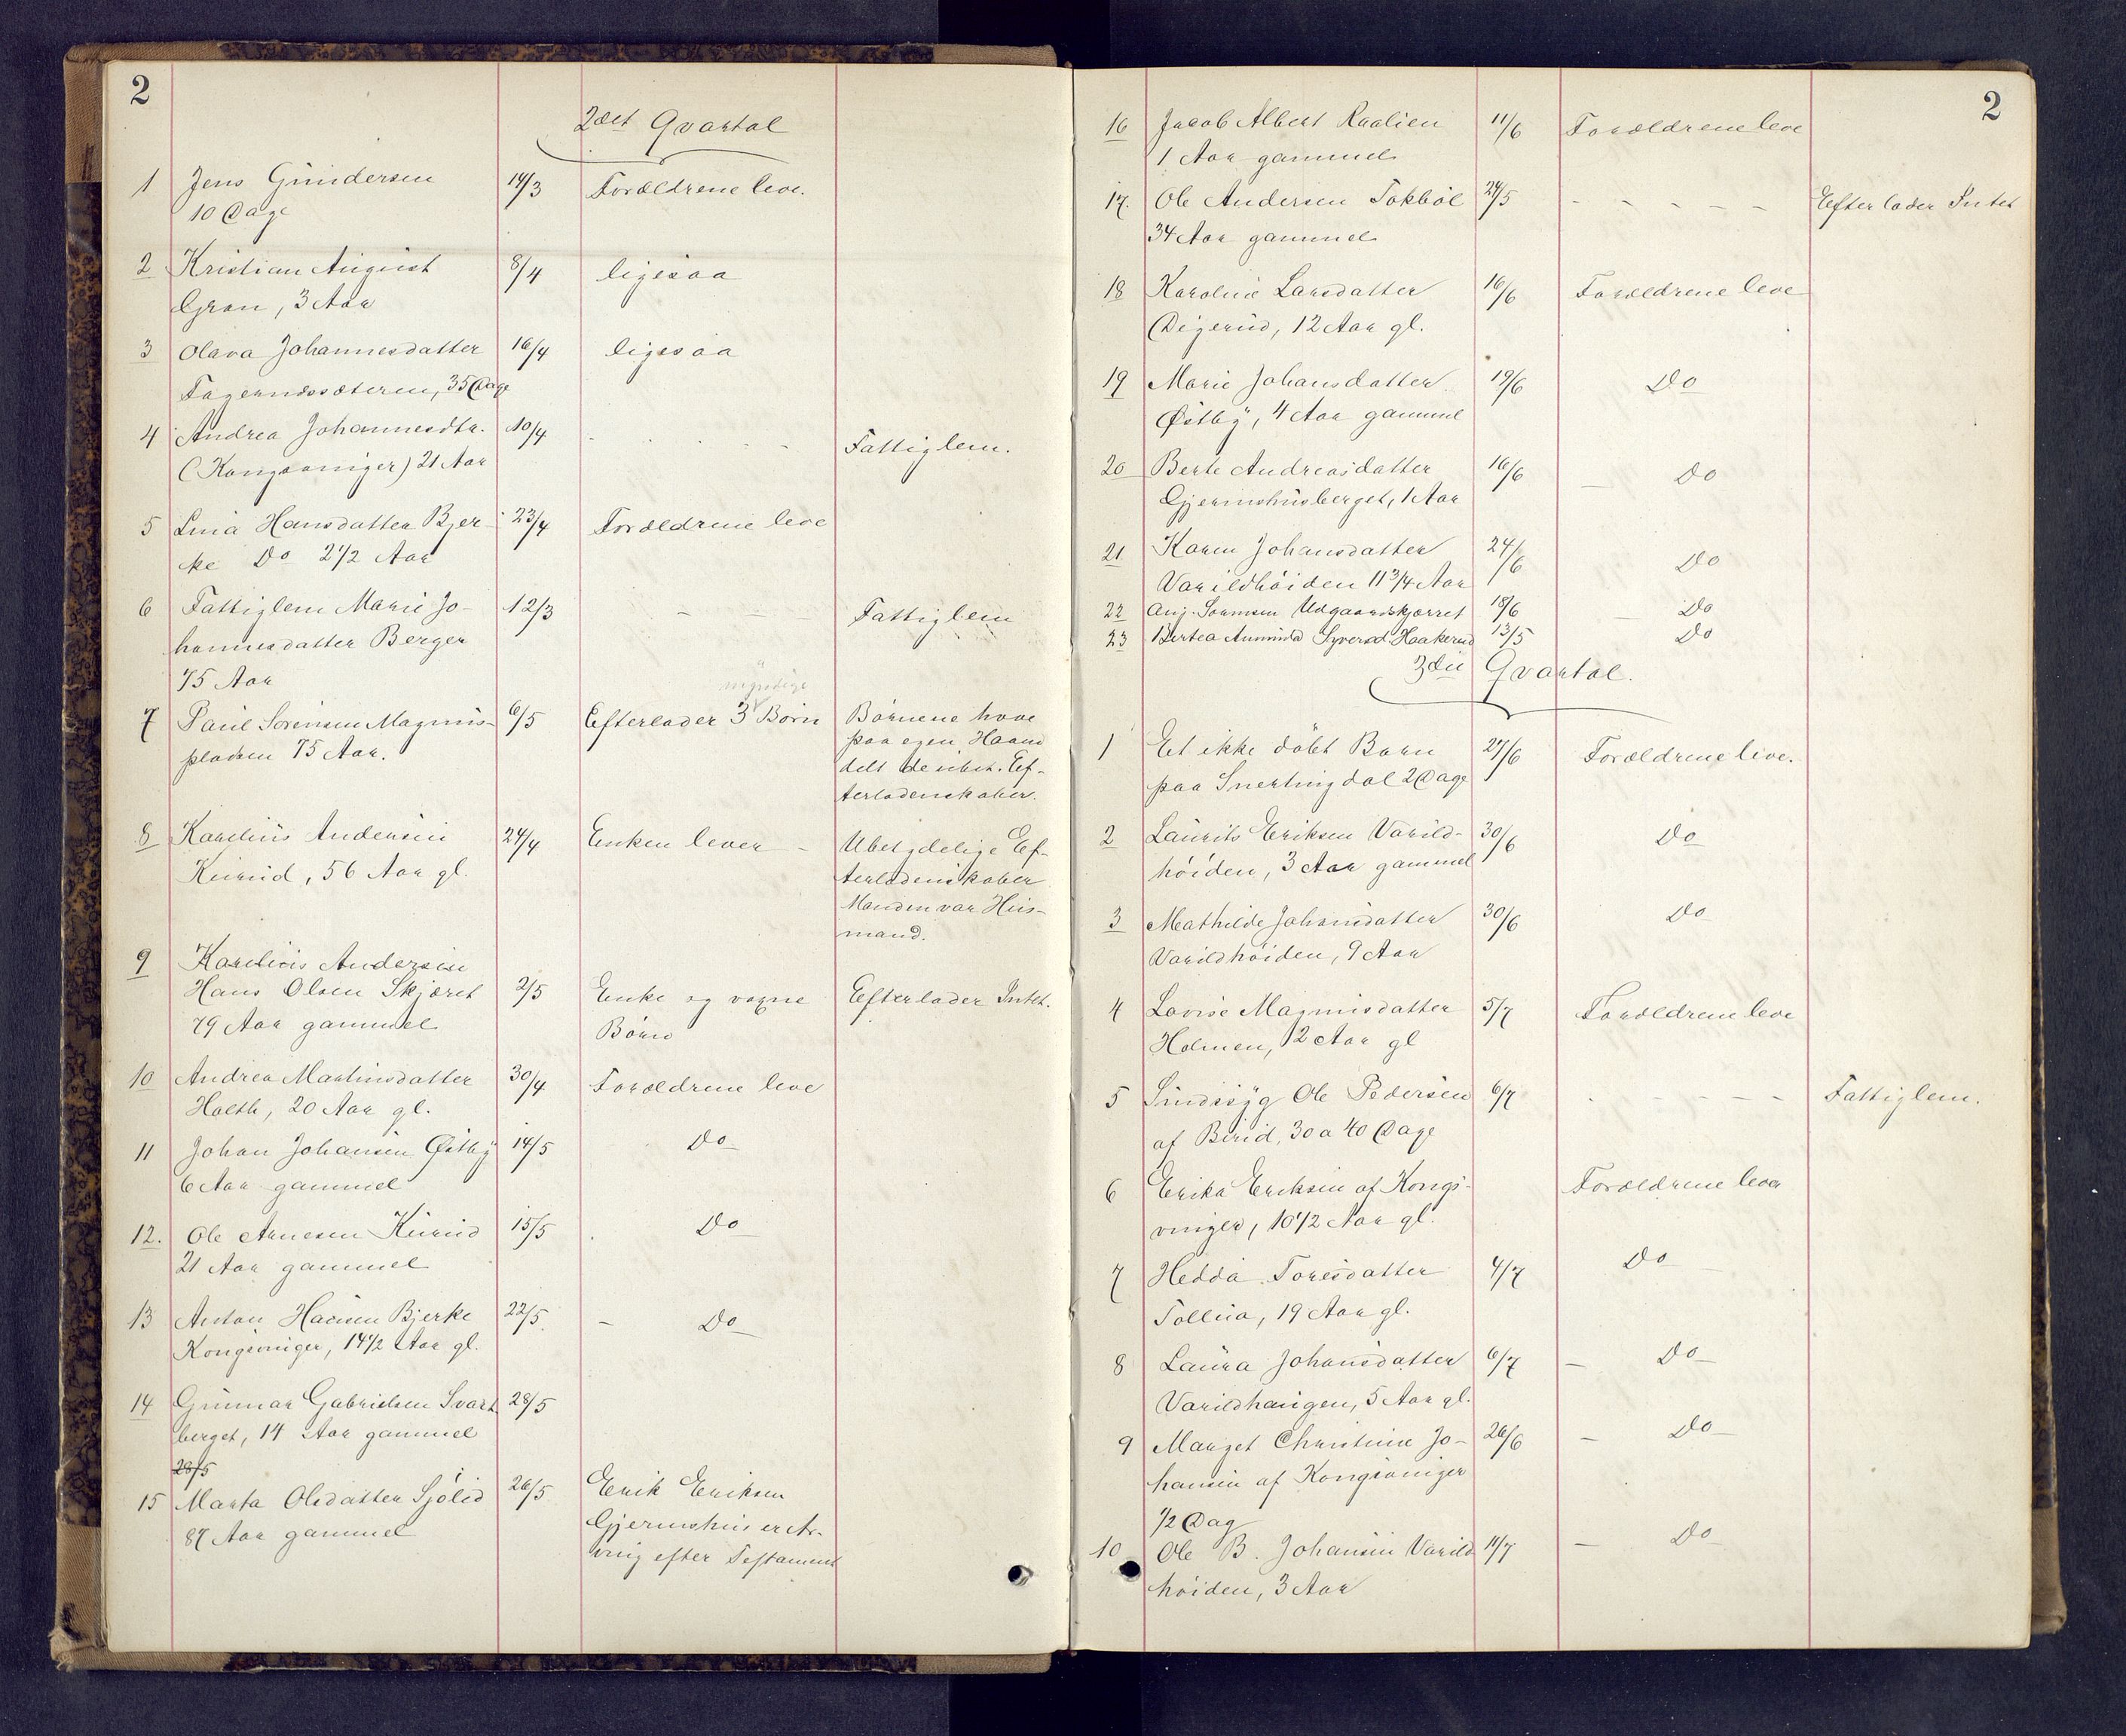 2
2det Qvartal
1 Jens Gundersen 14/3 Forældrene leve.
10 Dage
2 Kristian August 8/4 ligesaa
Gran, 3 Aar
3 Olava Johannesdatter 16/4 ligesaa
Fagernæssæteren, 35 Dage
4 Andrea Johannesdtr. 10/4 - - - - - Fattiglem.
(Kongsvinger) 21 Aar
5 Lina Hansdatter Bjer- 23/4 Forældrene leve
ke Do 2 1/2 Aar
6 Fattiglem Marie Jo- 12/3 - - - Fattiglem
hannesdatter Berger
75 Aar
myndige
7 Paul Sørensen Magnus- 6/5 Efterlader 3 Børn Børnene have
pladsen 75 Aar. paa egen Haand
delt de ubet. Ef-
terladenskaber.
8 Karelius Andersen 24/4 Enken lever - Ubetydelige Ef-
Kurud, 56 Aar gl. terladenskaber
Manden var Hus-
mand.
9 Karelius Andersen
Hans Olsen Skjæret 2/5 Enke og voxne Efterlader Intet.
79 Aar gammel Børn
10 Andrea Martinsdatter 30/4 Forældrene leve
Holth, 20 Aar gl.
11 Johan Johansen Østby 14/5 Do
6 Aar gammel
12. Ole Arnesen Kurud 15/5 Do
21 Aar gammel
13 Anton Hansen Bjerke 22/5 - Do
Kongsvinger, 14 1/2 Aar gl.
14 Gunnar Gabrielsen Svart 28/5
berget, 14 Aar gammel
28/5
15 Marta Olsdatter Sjølid 26/5 Erik Eriksen
87 Aar gammel Gjermshus er Ar-
ving efter Testament
2
16 Jacob Albert Raalien 11/6 Forældrene leve
1 Aar gammel
17. Ole Andersen Tokbøl 24/5 - - - - - Efterlader Intet
34 Aar gammel
18 Karoline Larsdatter 16/6 Forældrene leve
Digerud, 12 Aar gl.
19 Marie Johansdatter 19/6 Do
Østby, 4 Aar gammel
20 Berte Andreasdatter 16/6 - Do
Gjermshusberget, 1 Aar
21 Karen Johansdatter 24/6 Do
Varildhøiden 11 3/4 Aar
22 Aug. Udgaardskjærret 18/6 - Do
23 Bertea Syversd. Haakerud 13/5 Do
3die Qvartal.
1 Et ikke døbt Barn 27/6 Forældrene leve.
paa Snertingdal 2 Dage
2 Laurits Eriksen Varild- 30/6 Do
høiden, 3 Aar gammel
3 Mathilde Johansdatter 30/6 Do
Varildhøiden, 9 Aar
4 Lovise Magnusdatter 5/7 Forældrene leve
Holmen, 12 Aar gl
5 Sindssyg Ole Pedersen 6/7 - - - - - Fattiglem.
af Birid, 30 a 40 Dage
6 Erika Eriksen af Kongs- Forældrene leve
vinger, 10 1/2 Aar gl.
7 Hedda Toresdatter 4/7 Do
Tollua, 19 Aar gl.
8 Laura Johansdatter 6/7 - Do
Varildhaugen, 5 Aar gl.
9 Marget Christine Jo- 26/6 - Do
hansen af Kongsvinger
1/2 Dag
10 Ole B. Johansen Varild 11/7 - Do
høiden, 3 Aar